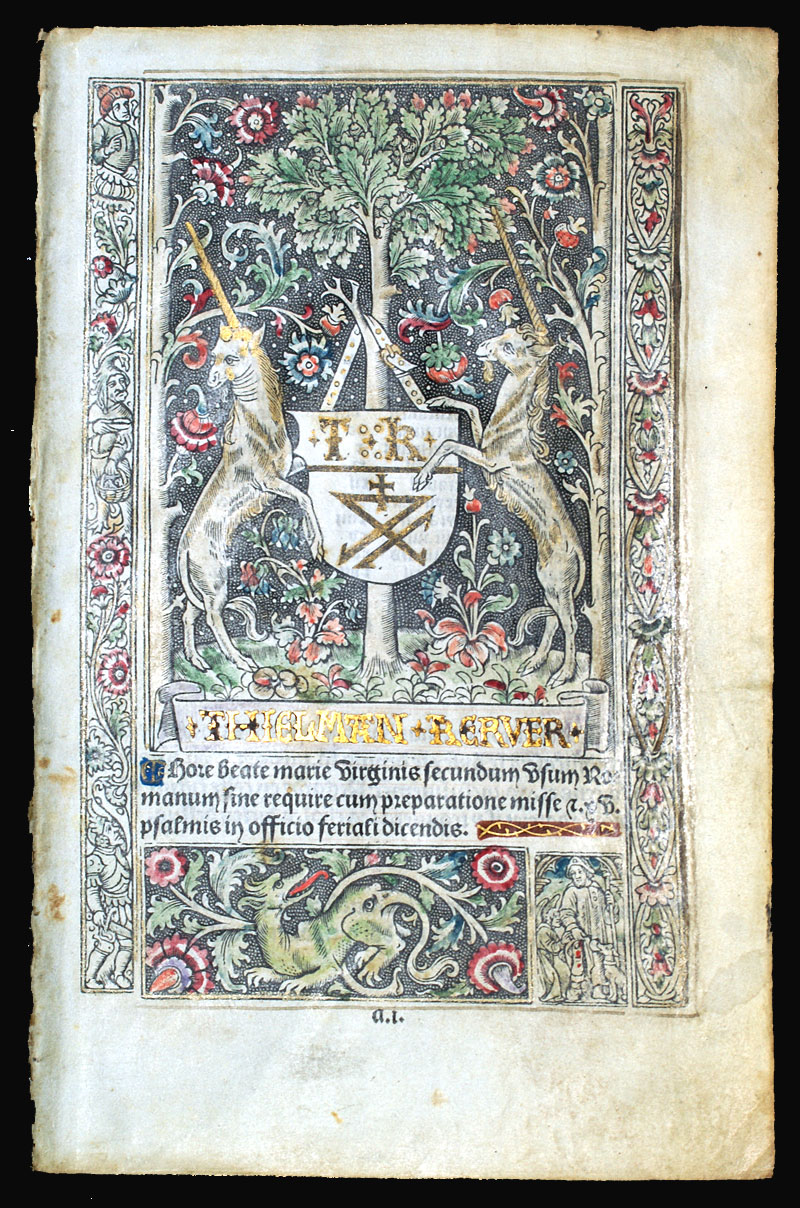 T R
THIELMAN KERVER
Hore beate marie virginis secundum vsum Ro-
manum sine require cum preparatione misse ⁊.xv.
psalmis in officio feriali dicendis.
a.i.